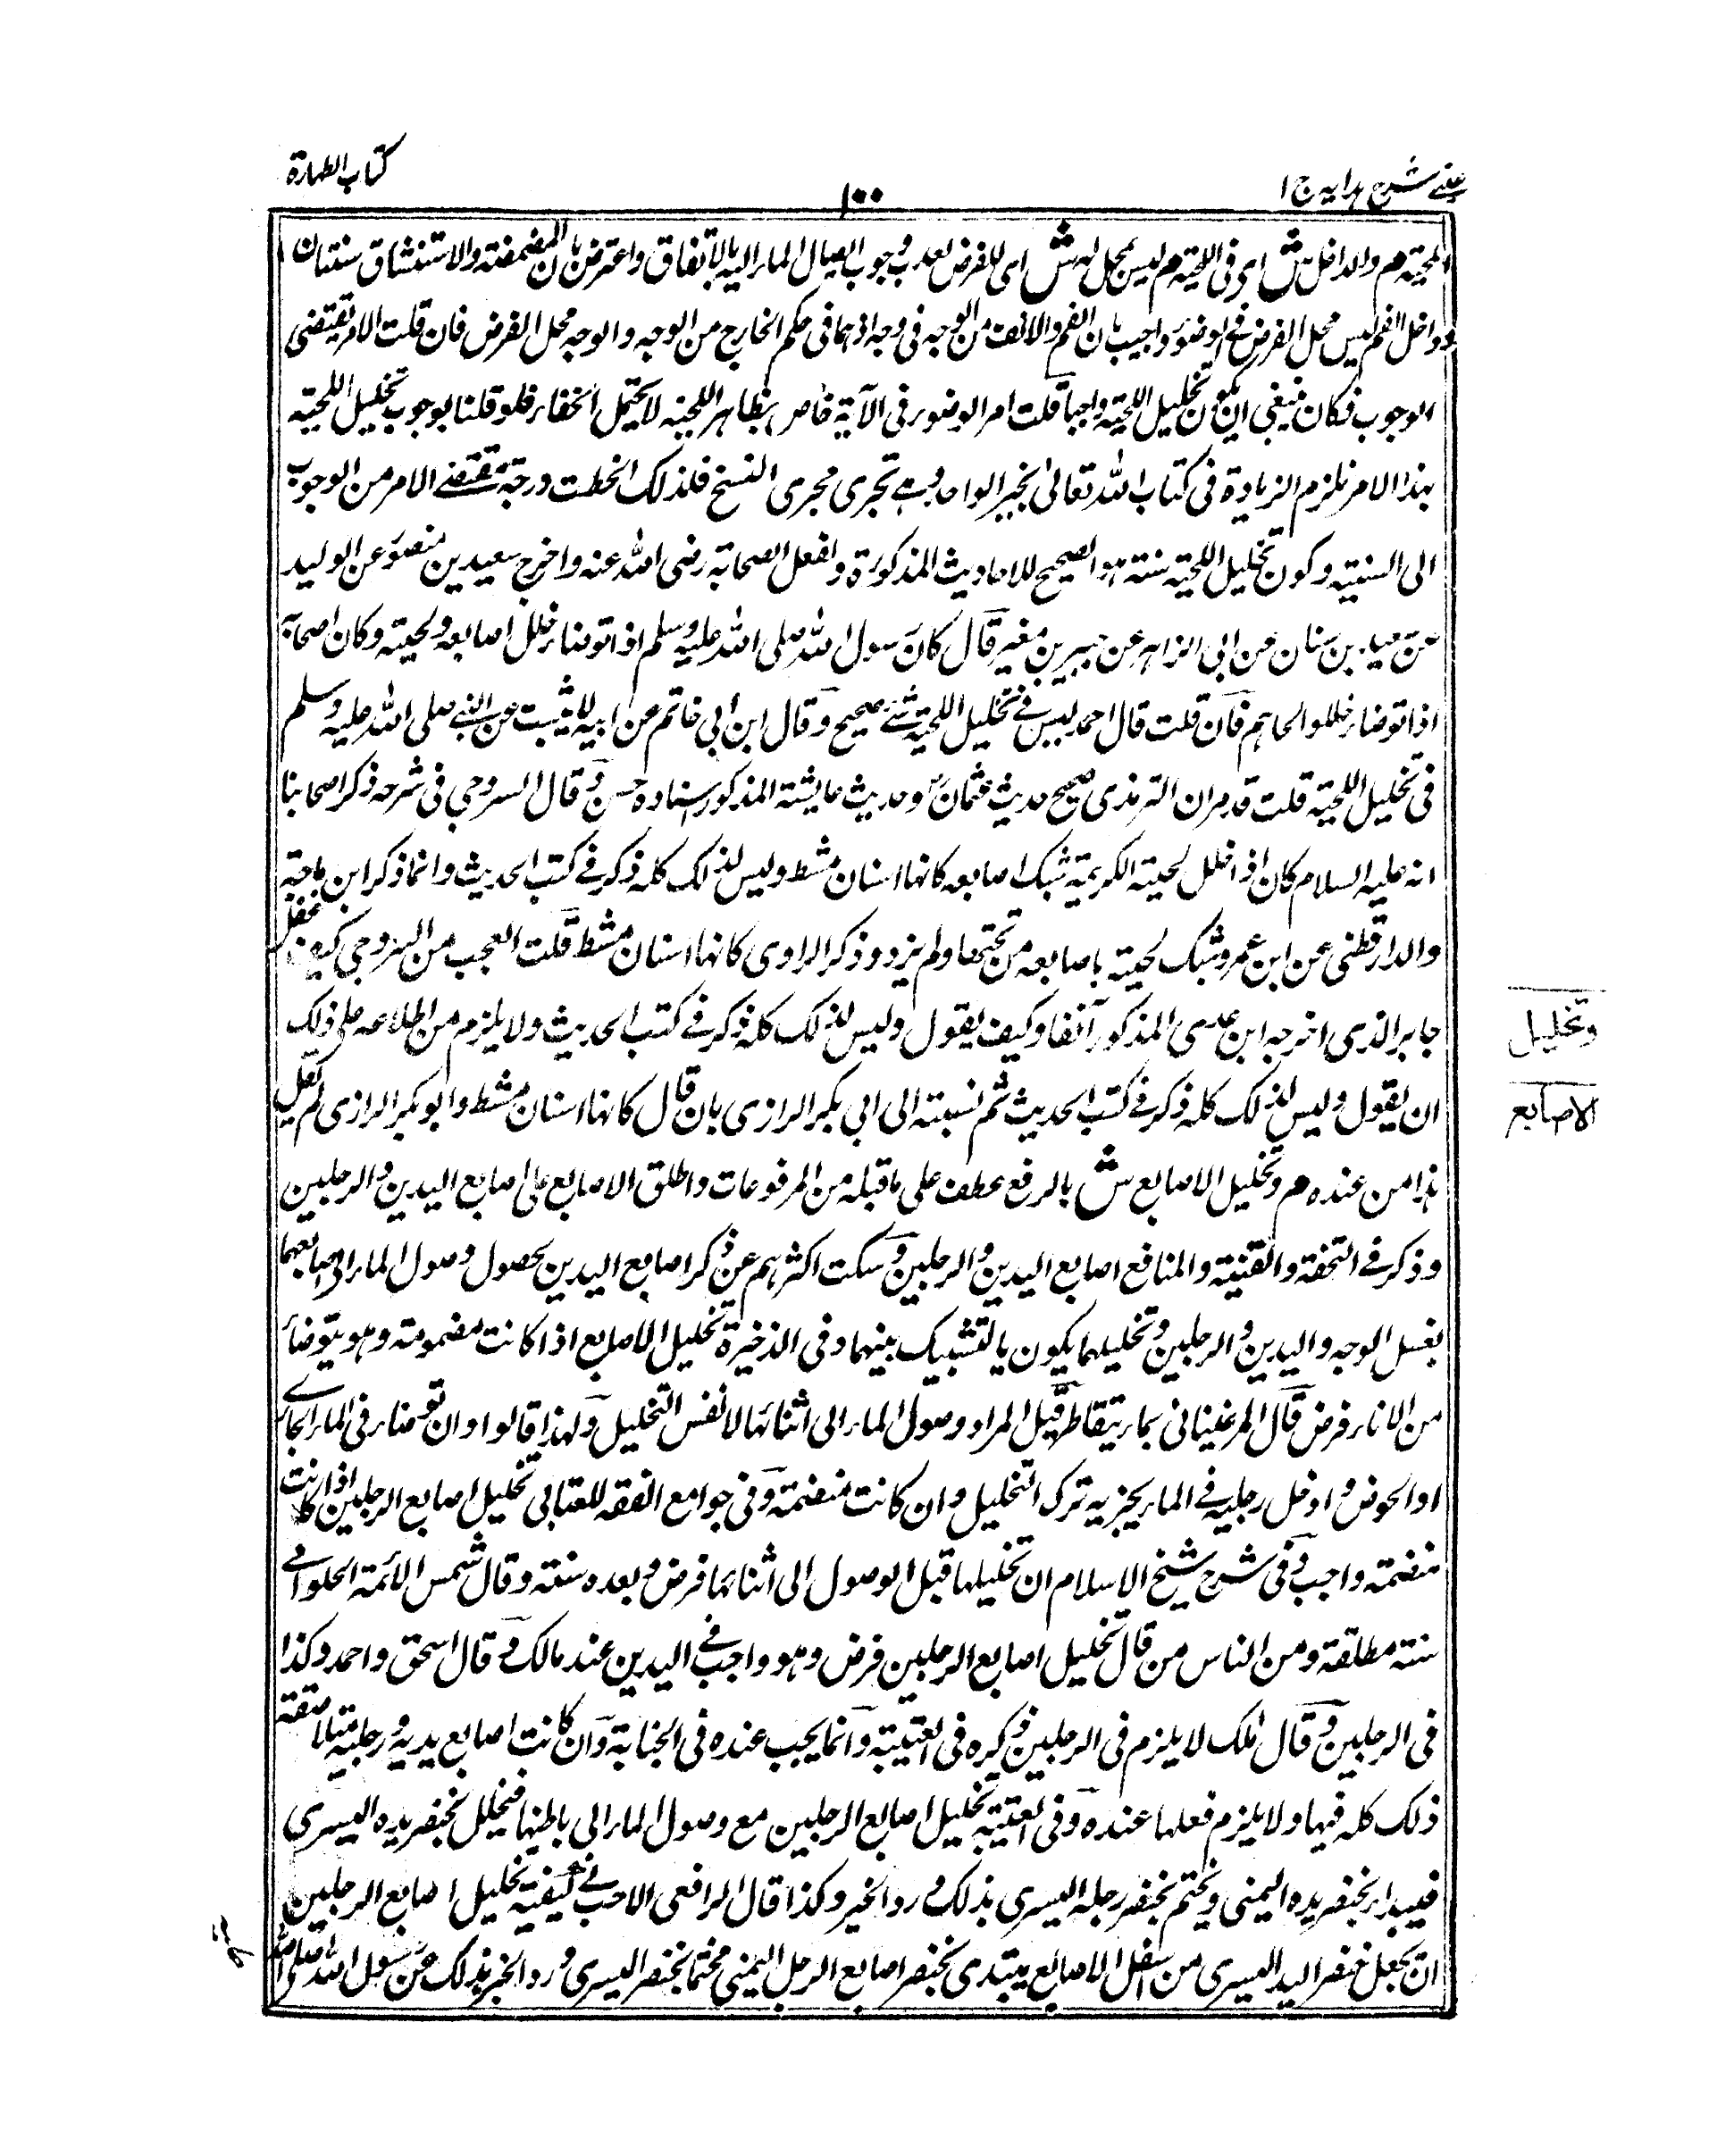 عینے شرح ہدایہ ج ا
١٠٠
کتاب الطہارۃ
اللحیۃ م والداخل ش ای فی اللحیۃ م لیس بمحل لہ ش ای للفرض لعدم وجوب ایصال الماء الیہ بالاتفاق واعترض بان المضمضۃ والاستنشاق سنتان
وداخل الفم لیس محل الفرض فی الوضوء واجیب بان الفم والانف من الوجہ فی وجہ اذ ہما فی حکم الخارج من الوجہ والوجہ محل الفرض فان قلت الامر یقتضی
الوجوب فکان ینبغی ان یکون تخلیل اللحیۃ واجبا قلت امر الوضوء فی الآیۃ خاص بظاہر اللحیۃ لا یحتمل الخفاء فلو قلنا بوجوب تخلیل اللحیۃ
بہذا الامر یلزم الزیادۃ فی کتاب اللہ تعالیٰ بخبر الواحد وہے تجری مجری النسخ فلذلک انحطت درجۃ مقتضے الامر من الوجوب
الی السنیۃ وکون تخلیل اللحیۃ سنۃ ہو الصحیح للاحادیث المذکورۃ ولفعل الصحابۃ رضی اللہ عنہ واخرج سعید بن منصور عن الولید
عن سعید بن سنان عن ابی الزاہر عن جبیر بن مغیر قال کان رسول اللہ صلی اللہ علیہ وسلم اذا توضاء خلل اصابعہ ولحیتہ وکان اصحابہ
اذا توضاء خللوا لحاہم فان قلت قال احمد لیس فے تخلیل اللحیۃ شئے صحیح وقال ابن ابی حاتم عن ابیہ لا یثبت عن النبے صلی اللہ علیہ وسلم
فی تخلیل اللحیۃ قلت قد مر ان الترمذی صحح حدیث عثمان رض وحدیث عایشۃ المذکور اسنادہ حسن وقال السروجی فی شرحہ ذکر اصحابنا
انہ علیہ السلام کان اذا خلل لحیتہ الکریمۃ شبک اصابعہ کانہا اسنان مشط ولیس لذلک کلہ ذکر فے کتب الحدیث وانما ذکر ابن ماجۃ
والدارقطنی عن ابن عمر وشبک لحیتہ باصابعہ من تحتہا ولم یزد وذکر الراوی کانہا اسنان مشط قلت العجب من السروجی کیف غفل عن
جابر الذی اخرجہ ابن عدی المذکور آنفا وکیف یقول ولیس لذلک کلہ ذکر فے کتب الحدیث ولا یلزم من اطلاعہ علی ذلک
ان یقول ولیس لذلک کلہ ذکر فے کتب الحدیث ثم نسبتہ الی ابی بکر الرازی بان قال کانہا اسنان مشط وابو بکر الرازی لم یقل
ہذا من عندہ م وتخلیل الاصابع ش بالرفع عطف علی ما قبلہ من المرفوعات واطلق الاصابع علی اصابع الیدین والرجلین
وذکر فے التحفۃ والقنیۃ والمنافع اصابع الیدین والرجلین وسکت اکثرہم عن ذکر اصابع الیدین لحصول وصول الماء الی اصابعہما
بغسل الوجہ والیدین والرجلین وتخلیلہما یکون بالتشبیک بینہما وفی الذخیرۃ تخلیل الاصابع اذا کانت مضمومۃ وہو یتوضأ
من الاناء فرض قال المرغینانی بماء یتقاطر قیل المراد وصول الماء الی اثنائہا لا نفس التخلیل ولہذا قالوا وان توضاء فی الماء الجاری
او الحوض وادخل رجلیہ فے الماء یجزیہ ترک التخلیل وان کانت منضمۃ وفی جوامع الفقہ للعتابی تخلیل اصابع الرجلین اذا کانت
منضمۃ واجب وفی شرح شیخ الاسلام ان تخلیلہا قبل الوصول الی اثنائہا فرض وبعدہ سنۃ وقال شمس الائمۃ الحلوانے
سنۃ مطلقۃ ومن الناس من قال تخلیل اصابع الرجلین فرض وہو واجب فے الیدین عند مالک وقال اسحق واحمد وکذا
فی الرجلین وقال مالک لا یلزم فی الرجلین وکرہ فی العتیبۃ وانما یجب عندہ فی الجنابۃ وان کانت اصابع یدیہ ورجلیہ متلاصقۃ
ذلک کلہ فیہا ولا یلزم فعلہا عندہ وفی العتیبۃ تخلیل اصابع الرجلین مع وصول الماء الی باطنہا فیخلل بخنصر یدہ الیسری
فیبداء بخنصر یدہ الیمنی ویختم بخنصر رجلہ الیسری بذلک ورد الخبر وکذا قال الرافعی الاحب فے کیفیۃ تخلیل اصابع الرجلین
ان یجعل خنصر الید الیسری من اسفل الاصابع یبتدی بخنصر اصابع الرجل الیمنی مختما بخنصر الیسری ورد الخبر بذلک عن رسول اللہ صلی اللہ
وتخلیل
الاصابع